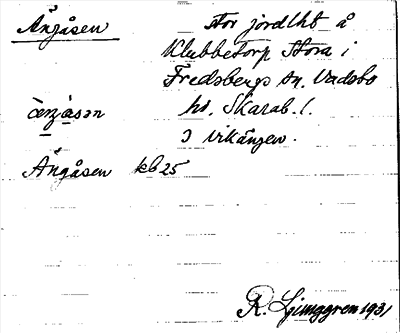 Ängåsen
Stor jordlht å
Klubbetorp Stora i
Fredsbergs sn, Vadsbo
hd, Skarab. l.
I vikängen.
Ängåsen kb 25
R. Ljunggren 1931